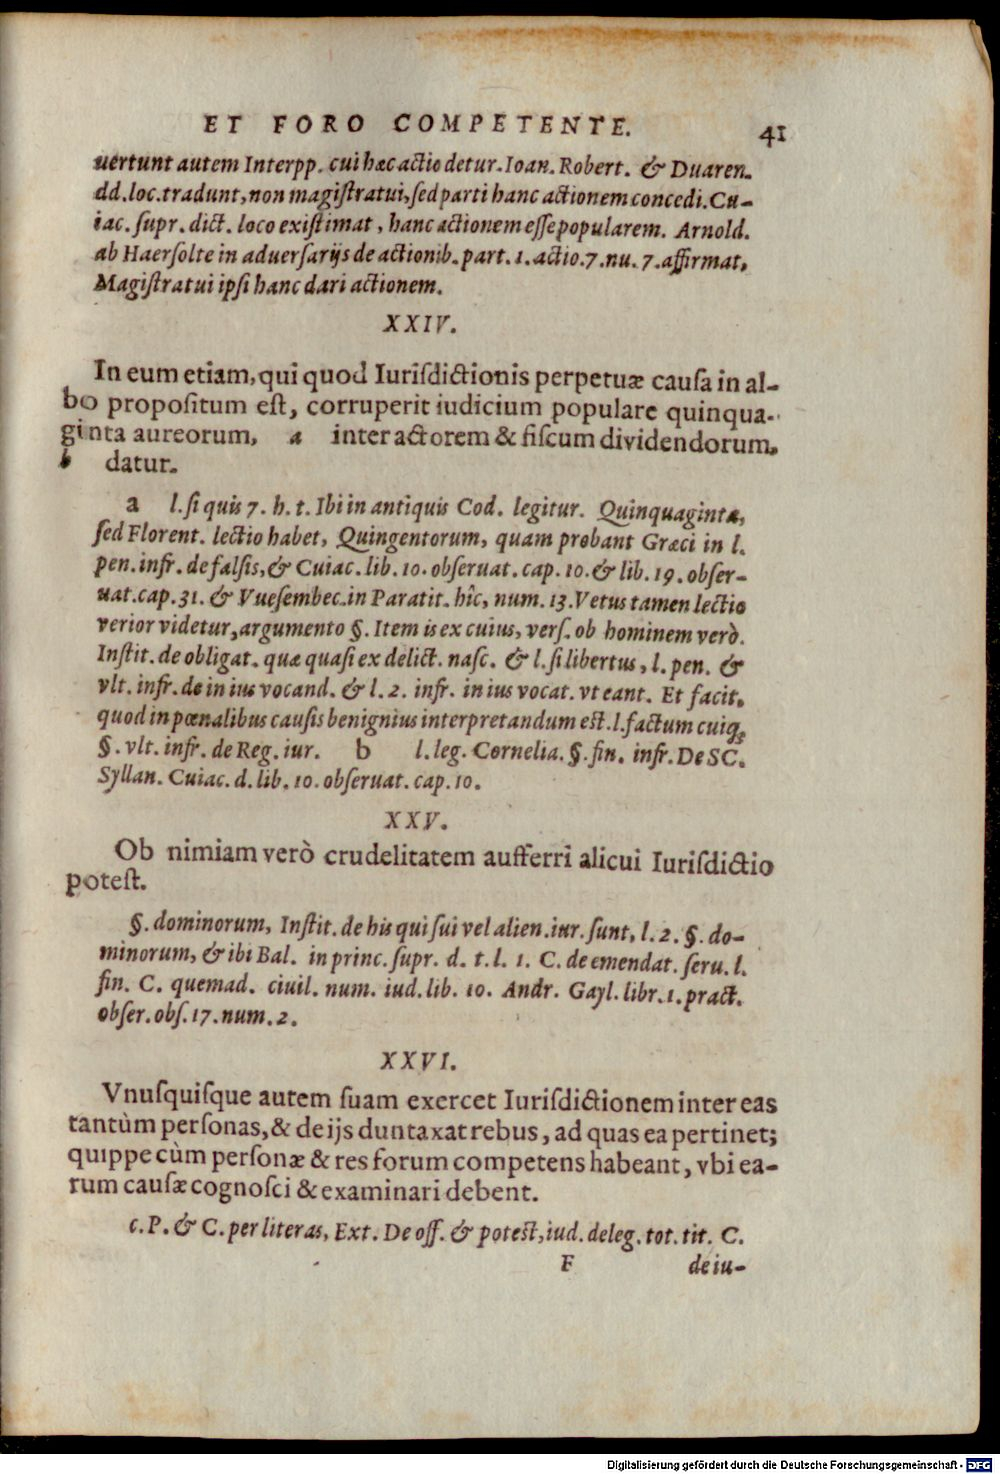 ET FORO COMPETENTE. 41
uertunt autem Interpp. cui hæc actio detur. Ioan. Robert. & Duaren.
dd. loc. tradunt, non magiſtratui, ſed parti hanc actionem concedi. Cu-
iac. ſupr. dict. loco exiſtimat, hanc actionem eſſe popularem. Arnold.
ab Haerſolte in aduerſarijs de actionib. part. 1. actio. 7. nu. 7. affirmat,
Magiſtratui ipſi hanc dari actionem.
XXIV.
In eum etiam, qui quod Iuriſdictionis perpetuæ cauſa in al-
bo propoſitum eſt, corruperit iudicium populare quinqua-
ginta aureorum, a inter actorem & fiſcum diuidendorum,
b datur.
a l. ſi quis 7. h. t. Ibi in antiquis Cod. legitur. Quinquaginta,
ſed Florent. lectio habet, Quingentorum, quam probant Græci in l.
pen. infr. de falſis, & Cuiac. lib. 10. obſeruat. cap. 10. & lib. 19. obſer-
uat. cap. 31. & Vueſembec. in Paratit. hîc, num. 13. Vetus tamen lectio
verior videtur, argumento §. Item is ex cuius, verſ. ob hominem verò.
Inſtit. de obligat. quæ quaſi ex delict. naſc. & l. ſi libertus, l. pen. &
vlt. infr. de in ius vocand. & l. 2. infr. in ius vocat. vt eant. Et facit,
quod in pœnalibus cauſis benignius interpretandum eſt. l. factum cuiq;
§. vlt. infr. de Reg. iur. b l. leg. Cornelia. §. fin. infr. De SC.
Syllan. Cuiac. d. lib. 10. obſeruat. cap. 10.
XXV.
Ob nimiam verò crudelitatem aufferri alicui Iuriſdictio
poteſt.
§. dominorum, Inſtit. de his qui ſui vel alien. iur. ſunt, l. 2. §. do-
minorum, & ibi Bal. in princ. ſupr. d. t. l. 1. C. de emendat. ſeru. l.
fin. C. quemad. ciuil. num. iud. lib. 10. Andr. Gayl. libr. 1. pract.
obſer. obſ. 17. num. 2.
XXVI.
Vnuſquiſque autem ſuam exercet Iuriſdictionem inter eas
tantùm perſonas, & de ijs duntaxat rebus, ad quas ea pertinet;
quippe cùm perſonæ & res forum competens habeant, vbi ea-
rum cauſæ cognoſci & examinari debent.
c. P. & C. per literas, Ext. De off. & poteſt, iud. deleg. tot. tit. C.
F de iu-
Digitalisierung gefördert durch die Deutsche Forschungsgemeinschaft - DFG